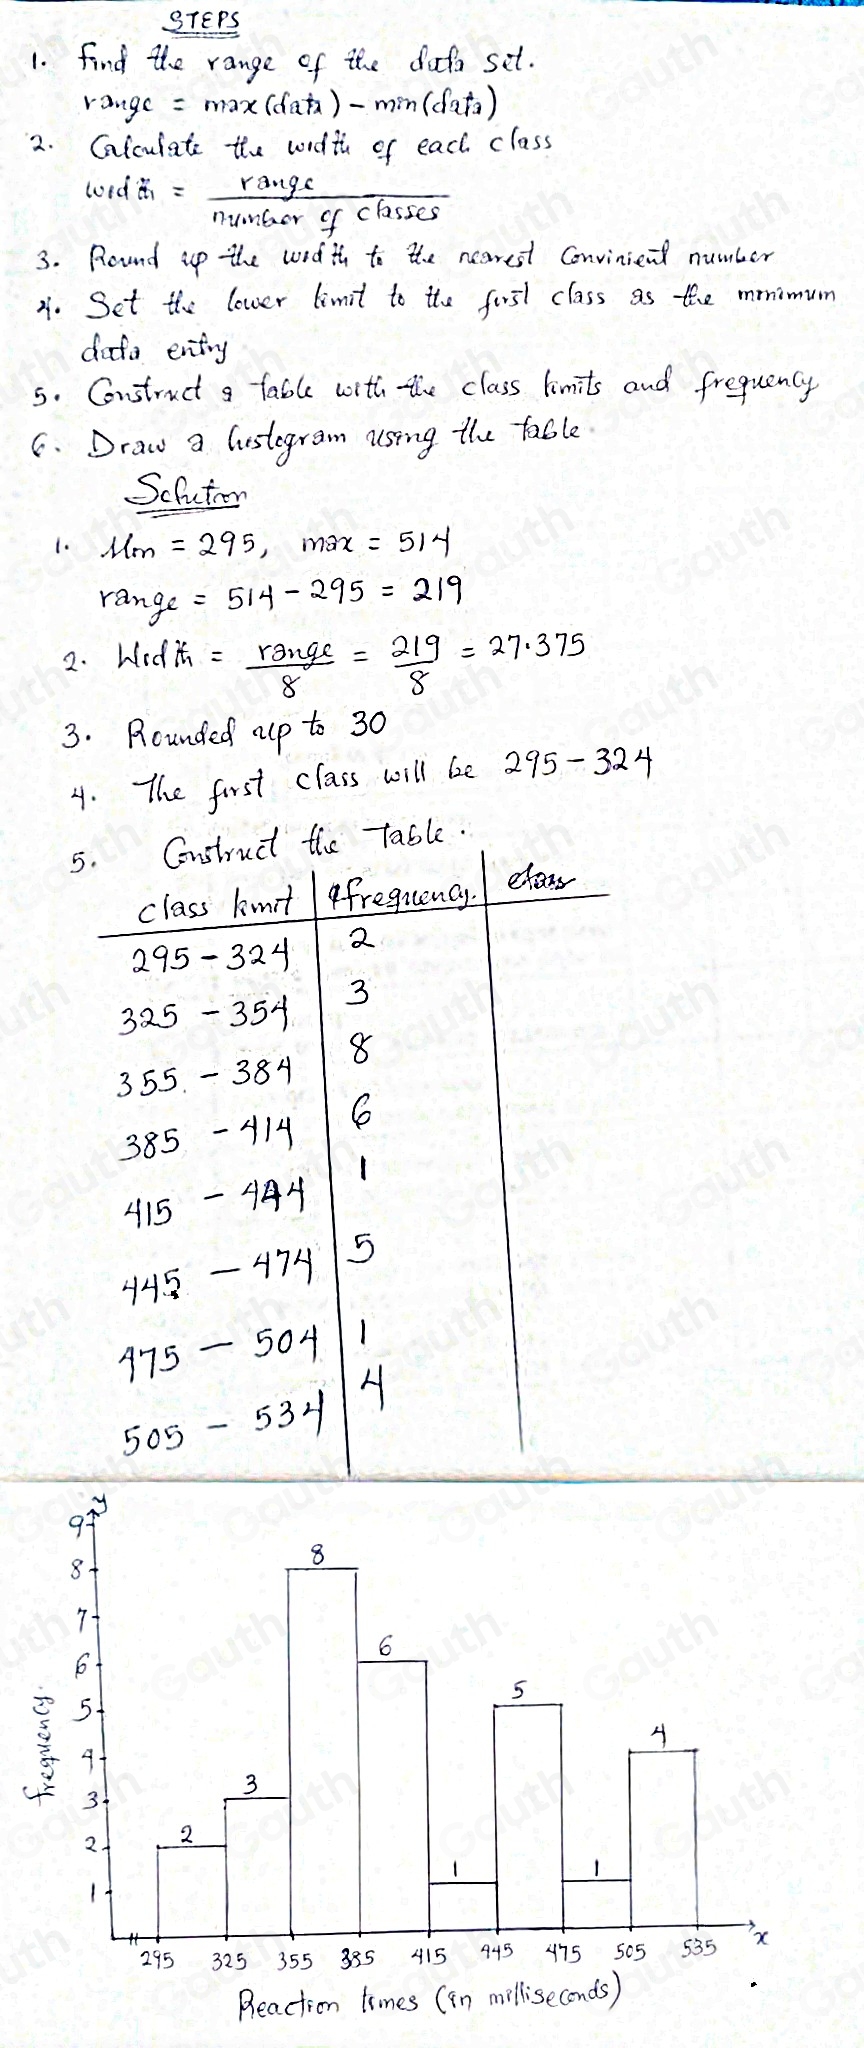 STEPS
1. Find the range of the data set.
range = max(data) - min(data)
2. Calculate the width of each class
width = range / number of classes
3. Round up the width to the nearest Convinient number
4. Set the lower limit to the first class as the minimum
data entry
5. Construct a table with the class limits and frequency
6. Draw a histogram using the table.
Solution
1. Min = 295, max = 514
range = 514 - 295 = 219
2. Width = range / 8 = 219 / 8 = 27.375
3. Rounded up to 30
4. The first class will be 295 - 324
5. Construct the Table.
class limit frequency. class
295 - 324 2
325 - 354 3
355 - 384 8
385 - 414 6
415 - 444 1
445 - 474 5
475 - 504 1
505 - 534 4
y
9
8 8
7
6 6
5 5
4 4
3 3
2 2
1 1 1
frequency.
295 325 355 385 415 445 475 505 535 x
Reaction times (in milliseconds)
Gauth